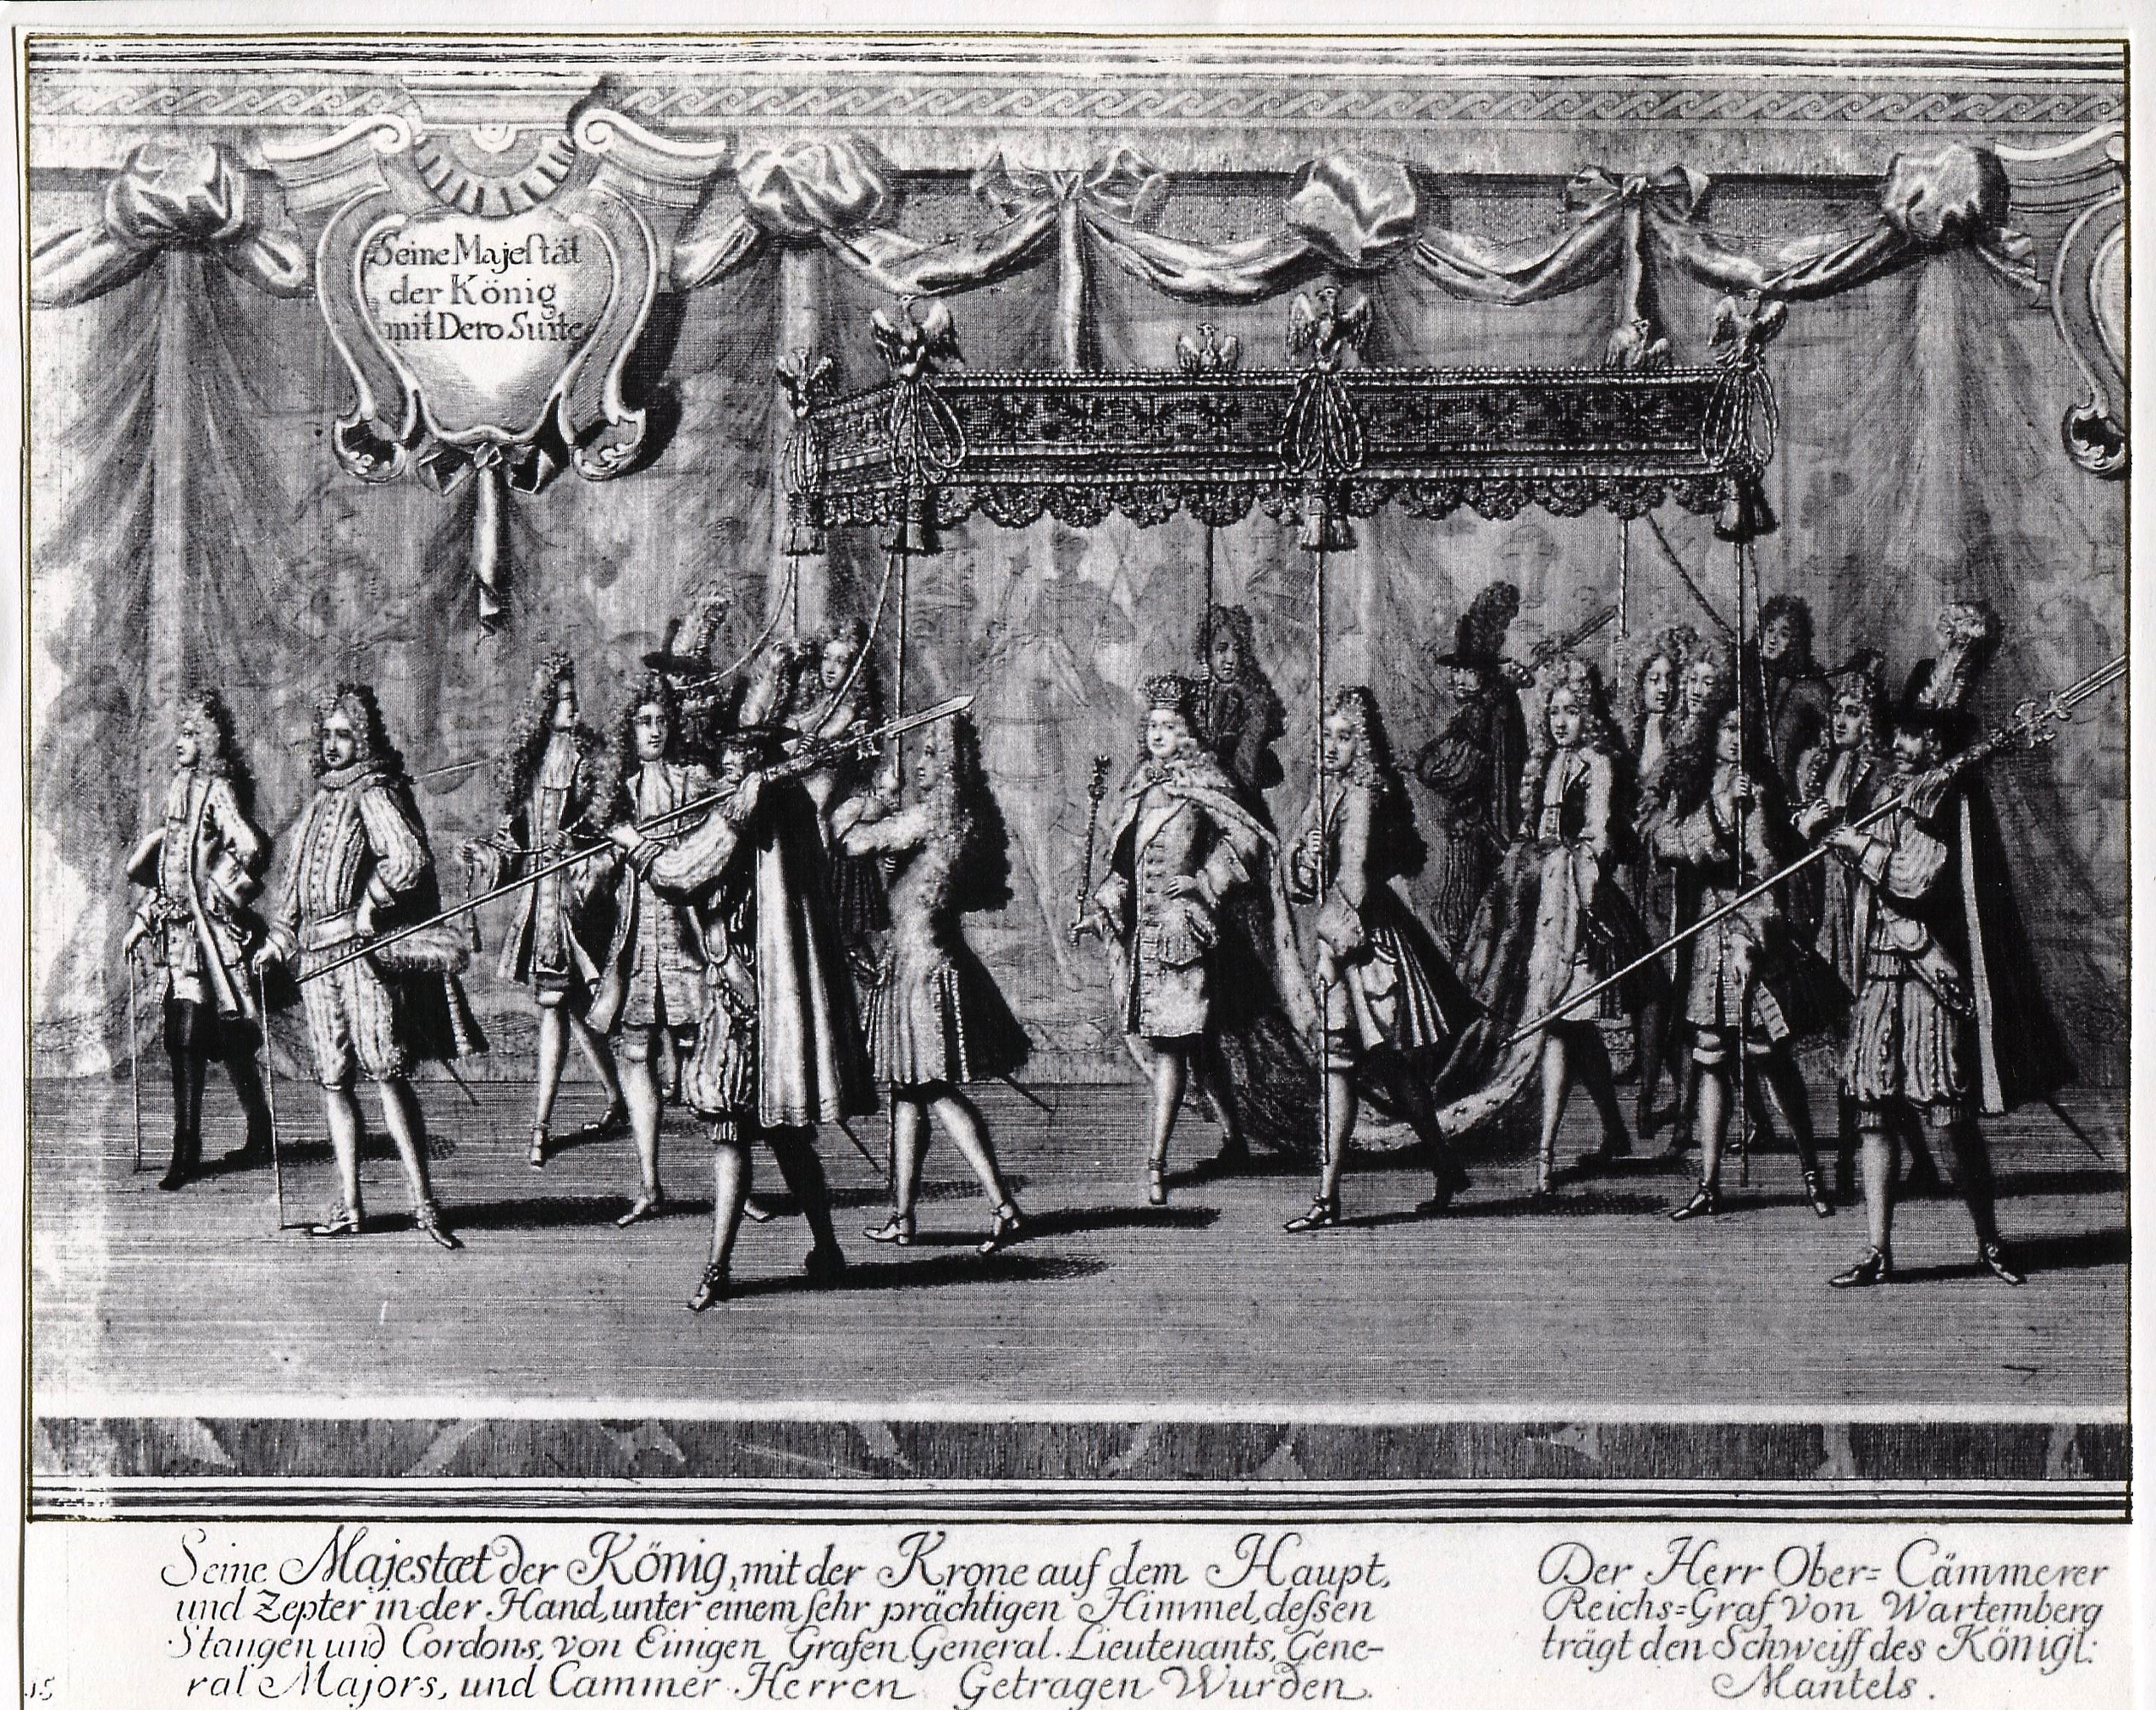 Seine Majestät
der König
mit Dero Suite
Seine Majestæt der König, mit der Krone auf dem Haupt,
und Zepter in der Hand, unter einem sehr prächtigen Himmel, dessen
Stangen und Cordons, von Einigen Grafen General-Lieutenants, Gene-
ral Majors, und Cammer-Herren Getragen Wurden.
Der Herr Ober=Cämmerer
Reichs=Graf von Wartemberg
trägt den Schweiff des Königl:
Mantels.
15